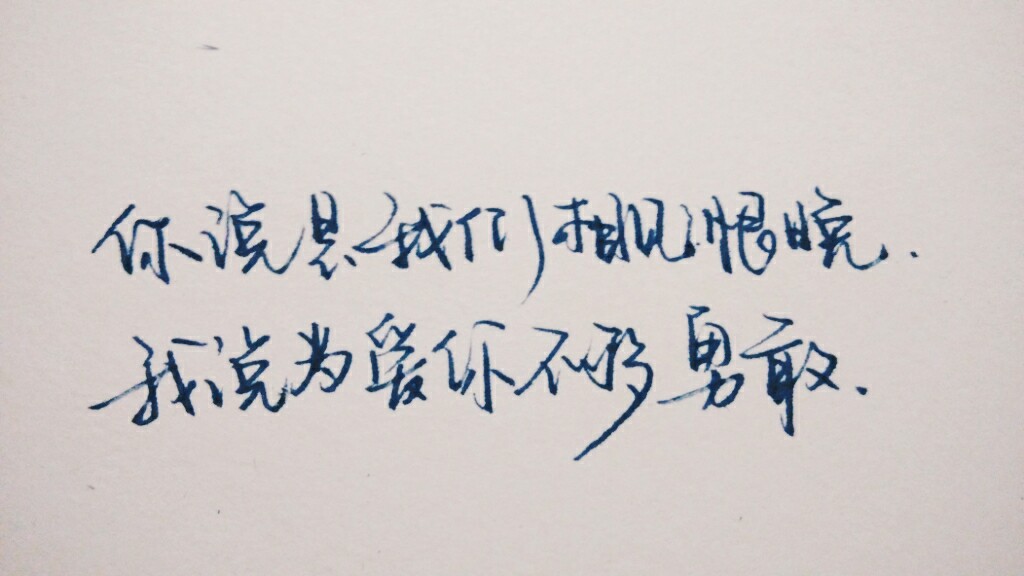 你说是我们相见恨晚.
我说为爱你不够勇敢.